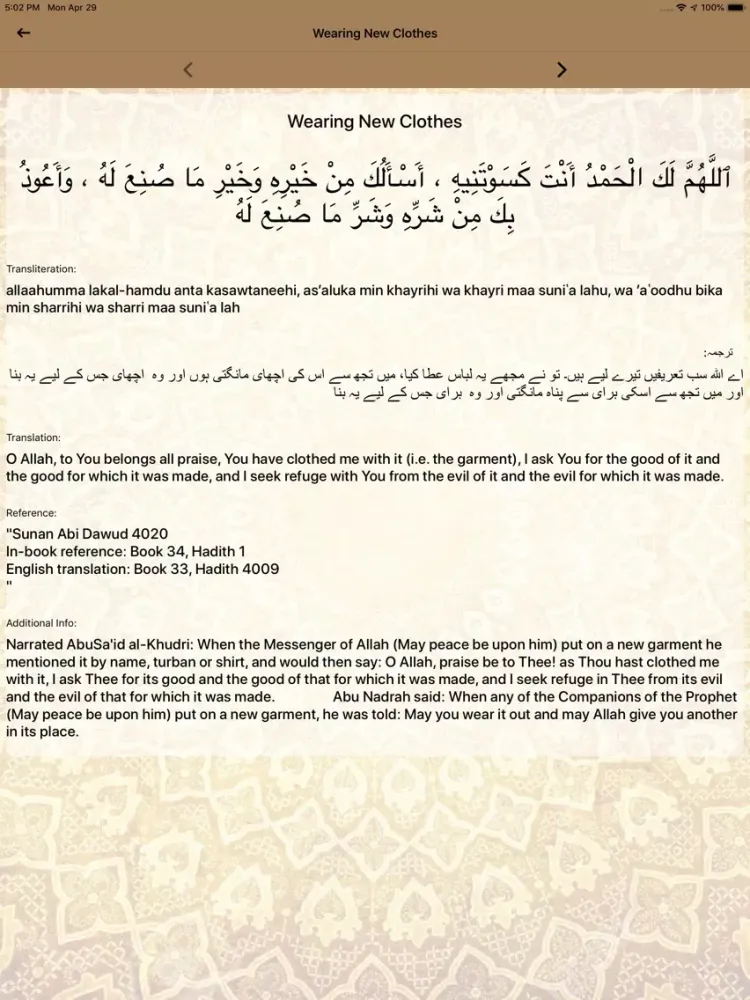 5:02 PM Mon Apr 29
100%
Wearing New Clothes
Wearing New Clothes
ٱللَّهُمَّ لَكَ الْحَمْدُ أَنْتَ كَسَوْتَنِيهِ ، أَسْأَلُكَ مِنْ خَيْرِهِ وَخَيْرِ مَا صُنِعَ لَهُ ، وَأَعُوذُ
بِكَ مِنْ شَرِّهِ وَشَرِّ مَا صُنِعَ لَهُ
Transliteration:
allaahumma lakal-hamdu anta kasawtaneehi, as’aluka min khayrihi wa khayri maa suni'a lahu, wa ‘a'oodhu bika
min sharrihi wa sharri maa suni'a lah
ترجمہ:
اے اللہ سب تعریفیں تیرے لیے ہیں۔ تو نے مجھے یہ لباس عطا کیا، میں تجھ سے اس کی اچھای مانگتی ہوں اور وہ اچھای جس کے لیے یہ بنا
اور میں تجھ سے اسکی برای سے پناہ مانگتی اور وہ برای جس کے لیے یہ بنا
Translation:
O Allah, to You belongs all praise, You have clothed me with it (i.e. the garment), I ask You for the good of it and
the good for which it was made, and I seek refuge with You from the evil of it and the evil for which it was made.
Reference:
"Sunan Abi Dawud 4020
In-book reference: Book 34, Hadith 1
English translation: Book 33, Hadith 4009
"
Additional Info:
Narrated AbuSa'id al-Khudri: When the Messenger of Allah (May peace be upon him) put on a new garment he
mentioned it by name, turban or shirt, and would then say: O Allah, praise be to Thee! as Thou hast clothed me
with it, I ask Thee for its good and the good of that for which it was made, and I seek refuge in Thee from its evil
and the evil of that for which it was made. Abu Nadrah said: When any of the Companions of the Prophet
(May peace be upon him) put on a new garment, he was told: May you wear it out and may Allah give you another
in its place.